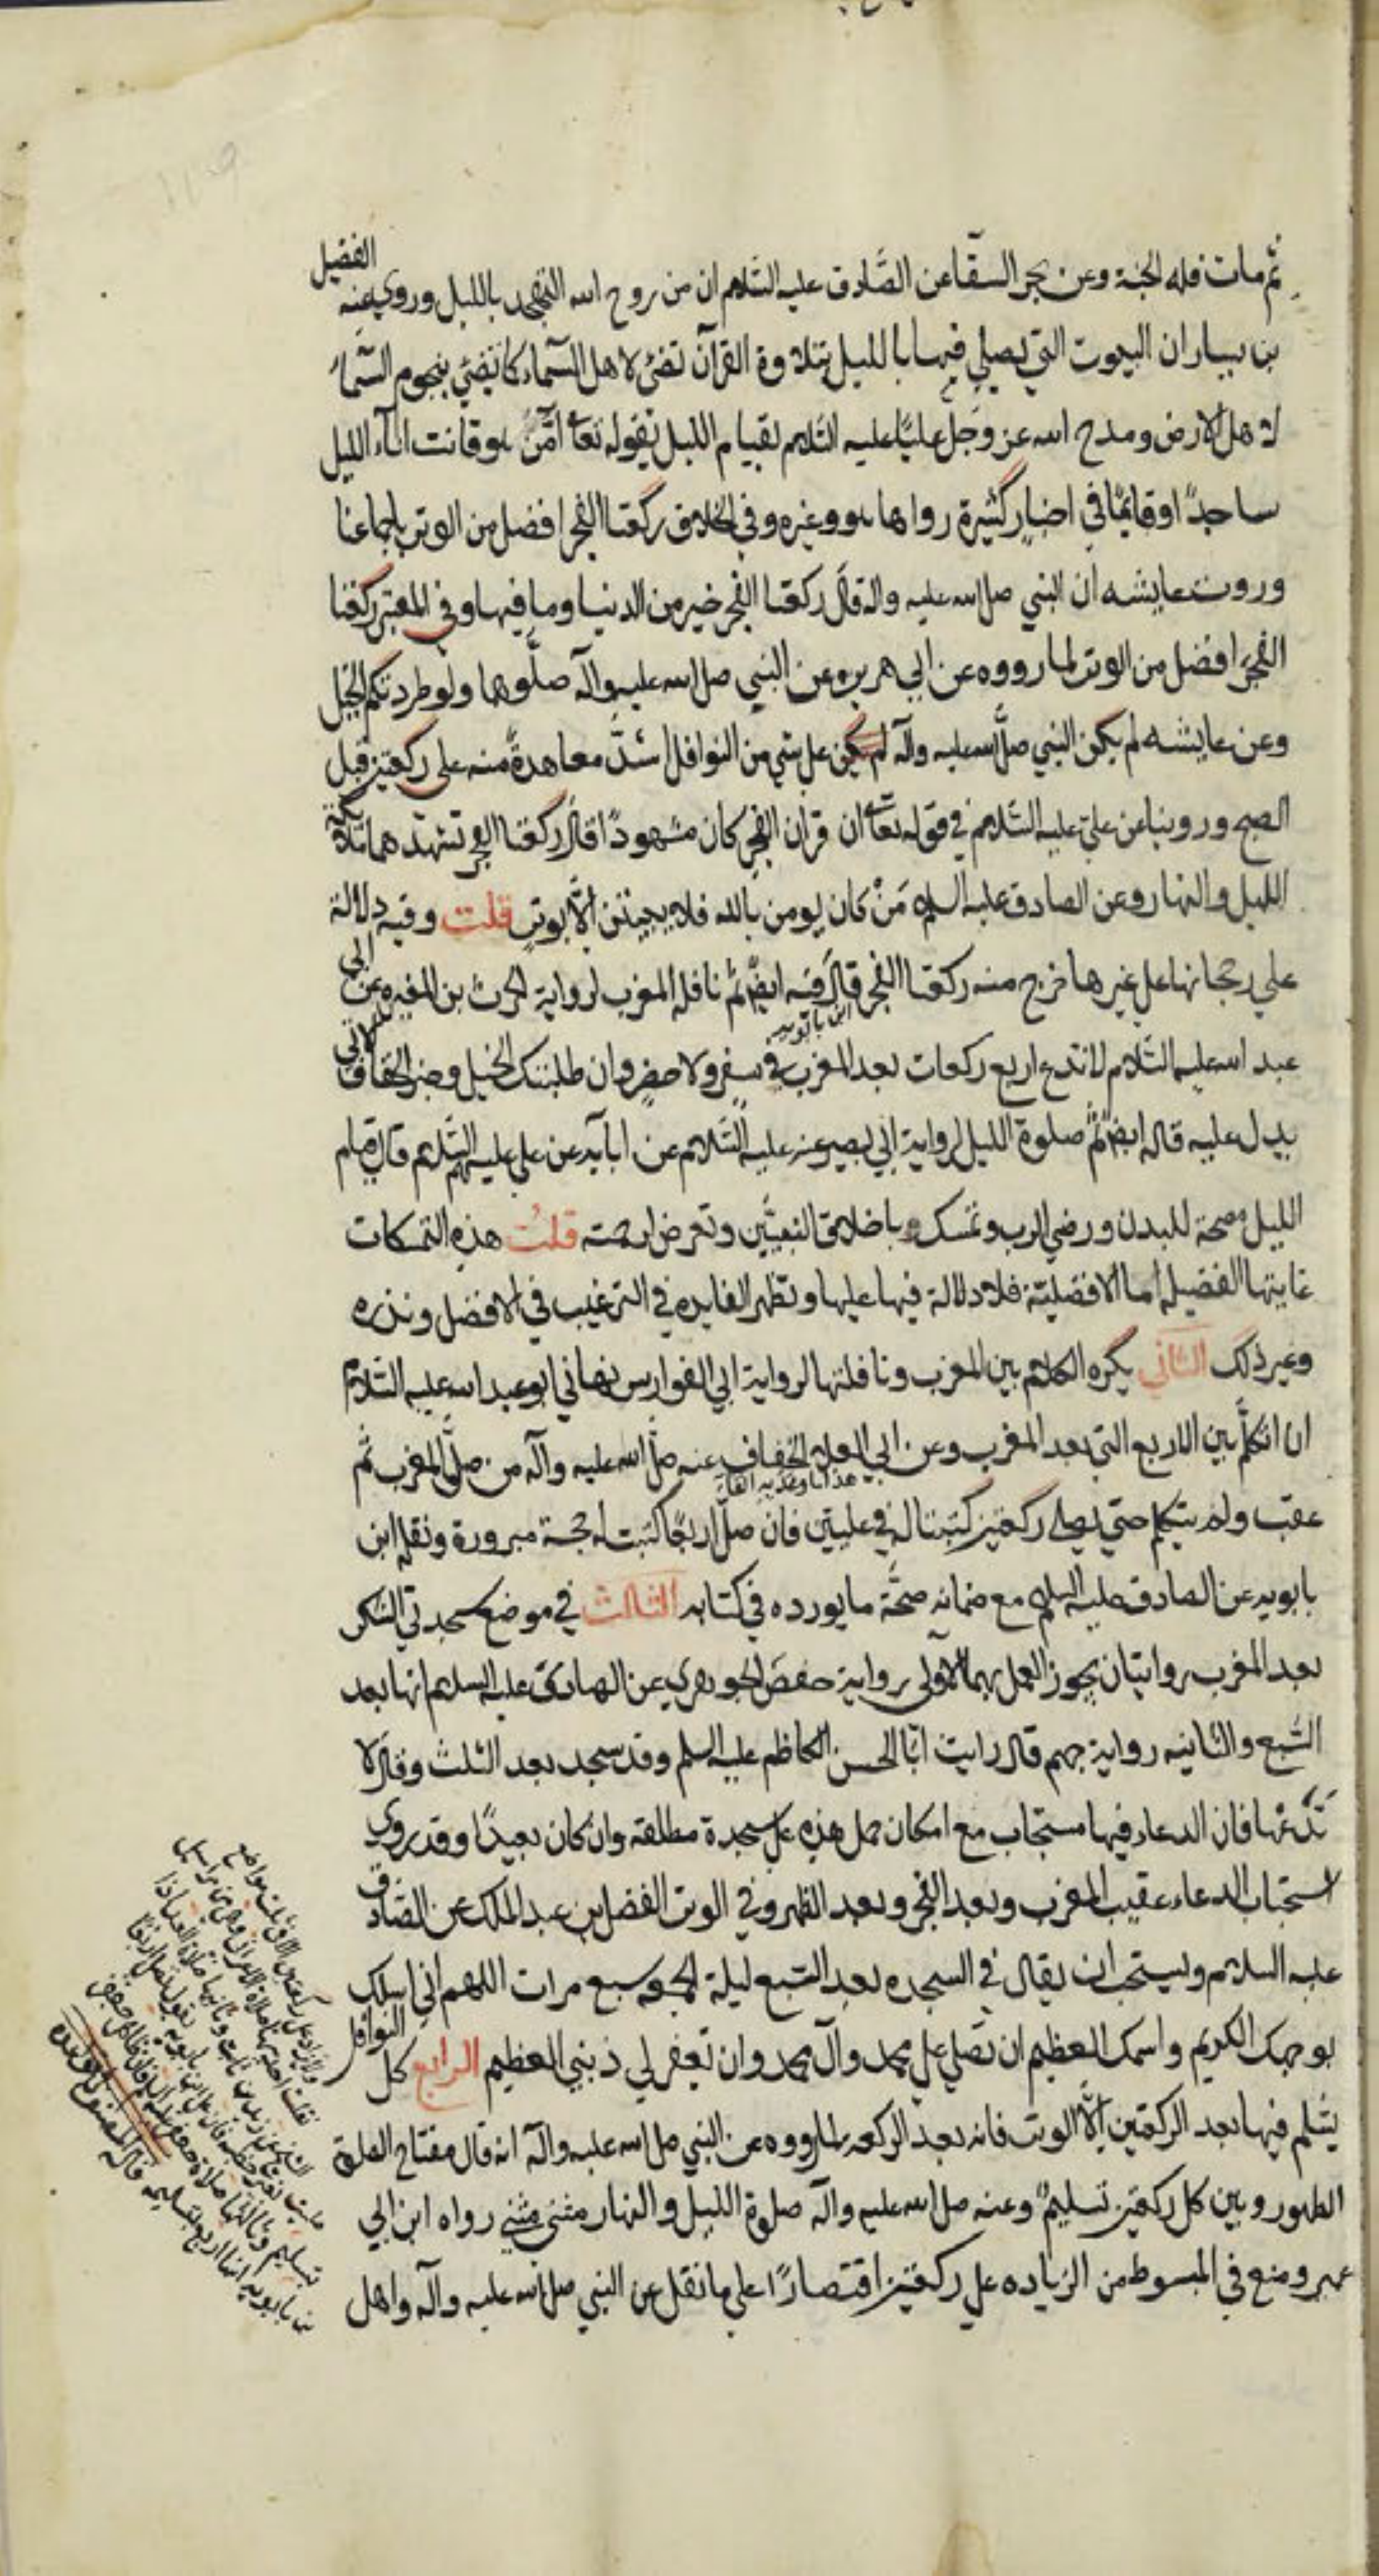 ثم مات فله الجنة وعن بحر السقا عن الصادق عليه السلام ان من روح الله التهجد بالليل وروى عنه الفضيل
بن يسار ان البيوت التي يصلي فيها بالليل بتلاوة القرآن تضئ لاهل السماء كما تضئ نجوم السماء
لاهل الارض ومدح الله عز وجل عليًا عليه السلام بقيام الليل بقوله تعا امّن هو قانت اناء الليل
ساجدًا او قائمًا في اخبار كثيرة رواها هو وغيره وفي الخلاف ركعتا الفجر افضل من الوتر باجماعنا
وروت عايشه ان النبي صلى الله عليه واله قال ركعتا الفجر خير من الدنيا وما فيها وفي المعتبر ركعتا
الفجر افضل من الوتر لما رووه عن ابي هريره عن النبي صلى الله عليه وآله صلوهما ولو طردتكم الخيل
وعن عايشه لم يكن النبي صلى الله عليه وآله لم يكن على شي من النوافل اشدّ معاهدةً منه على ركعتين قبل
الصبح وروينا عن علي عليه السلام في قوله تعا ان قرآن الفجر كان مشهودًا قال ركعتا الفجر تشهدهما ملائكة
الليل والنهار وعن الصادق عليه السلام مَنْ كان يومن بالله فلا يبيتن الّا بوتر قلت وفيه دلالة
علي رجحانها على غيرها خرج منه ركعتا الفجر قال ابن بابويه ثم نافلة المغرب لرواية الحرث بن المغيره عن ابي
عبد الله عليه السلام لا تدع اربع ركعات بعد المغرب في سفر ولا حضر وان طلبتك الخيل وخبر الخفاف الاتي
يدل عليه قال ايضً ثم صلوة الليل لرواية ابي بصير عنه عليه السلام عن ابايه عن علي عليهم السلام قال قيام
الليل مصحة للبدن ورضي الرب وتمسك باخلاق النبيّين وتعرض لرحمته قلت هذه التمسكات
غايتها الفضيله اما الافضلية فلا دلالة فيها عليها وتظهر الفايده في الترغيب في الافضل ونذره
وغير ذلك الثاني يكره الكلام بين المغرب ونافلتها لرواية ابي الفوارس نهاني ابو عبد الله عليه السلام
ان اتكلم بين الاربع التي بعد المغرب وعن ابي العلا الخفاف عنه صلى الله عليه وآله من صلى المغرب ثم
عقب ولم يتكلم حتي يصلي ركعتين كتبتا له في عليين فان صلى اربعًا كتبت له حجة مبرورة ونقله ابن
بابويه عن الصادق عليه السلم مع ضمانه صحّة ما يورده في كتابه الثالث في موضع سجدتي الشكر
بعد المغرب روايتان يجوز العمل بهما الاولى رواية حفص الجوهري عن الهادي عليه السلم انها بعد
السّبع والثانيه رواية جهم قال رايت ابا الحسن الكاظم عليه السلم وقد سجد بعد الثلث وقال لا
تدعها فان الدعاء فيها مستجاب مع امكان حمل هذه على سجدة مطلقه وان كان بعيدًا وقد روى
استحباب الدعاء عقيب المغرب وبعد الفجر وبعد الظهر وفي الوتر الفضل ابن عبد الملك عن الصادق
عليه السلام ويستحب ان يقال في السجده بعد السبع ليلة الجمعه سبع مرات اللهم اني اسلك
بوجهك الكريم واسمك العظيم ان تصلي على محمد وآل محمد وان تغفر لي ذنبي العظيم الرابع كل النوافل
يسلم فيها بعد الركعتين الّا الوتر فانه بعد الركعه لما رووه عن النبي صلى الله عليه وآله انه قال مفتاح الصلوة
الطهور وبين كل ركعتين تسليم وعنه صلى الله عليه وآله صلوة الليل والنهار مثنى مثنى رواه ابن ابي
عمير ومنع في المبسوط من الزياده على ركعتين اقتصارًا على ما نقل عن النبي صلى الله عليه وآله واهل